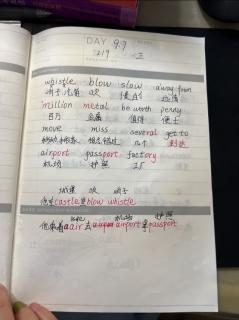 DAY 9.7
219 三
whistle blow slow away from
哨子,吹哨 吹 慢的
million metal be worth penny
百万 金属 值得 便士
move miss several get to
几个 到达
airport passport factory
机场 护照 工厂
城堡 吹 哨子
他在castle里blow whistle
机场 护照
他拿着 air 去 airport 拿passport